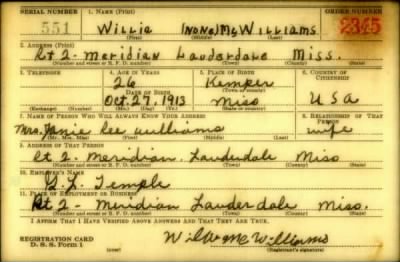 SERIAL NUMBER 1. NAME (Print) ORDER NUMBER
551 Willie (none) McWilliams 2345
(First) (Middle) (Last)
2. ADDRESS (Print)
Rt 2- Meridian Lauderdale Miss.
(Number and street or R. F. D. number) (Town) (County) (State)
3. TELEPHONE 4. AGE IN YEARS 5. PLACE OF BIRTH 6. COUNTRY OF CITIZENSHIP
26 Kemper
DATE OF BIRTH (Town or county)
Oct. 27, 1913 Miss U S A
(Exchange) (Number) (Mo.) (Day) (Yr.) (State or country)
7. NAME OF PERSON WHO WILL ALWAYS KNOW YOUR ADDRESS 8. RELATIONSHIP OF THAT PERSON
Mrs. Janie Lee Williams wife
(Mr., Mrs., Miss) (First) (Middle) (Last)
9. ADDRESS OF THAT PERSON
Rt 2- Meridian. Lauderdale Miss
(Number and street or R. F. D. number) (Town) (County) (State)
10. EMPLOYER'S NAME
Temple
11. PLACE OF EMPLOYMENT OR BUSINESS
Rt 2- Meridian Lauderdale Miss.
(Number and street or R. F. D. number) (Town) (County) (State)
I AFFIRM THAT I HAVE VERIFIED ABOVE ANSWERS AND THAT THEY ARE TRUE.
REGISTRATION CARD Willie McWilliams
D. S. S. Form 1 (Registrant's signature)